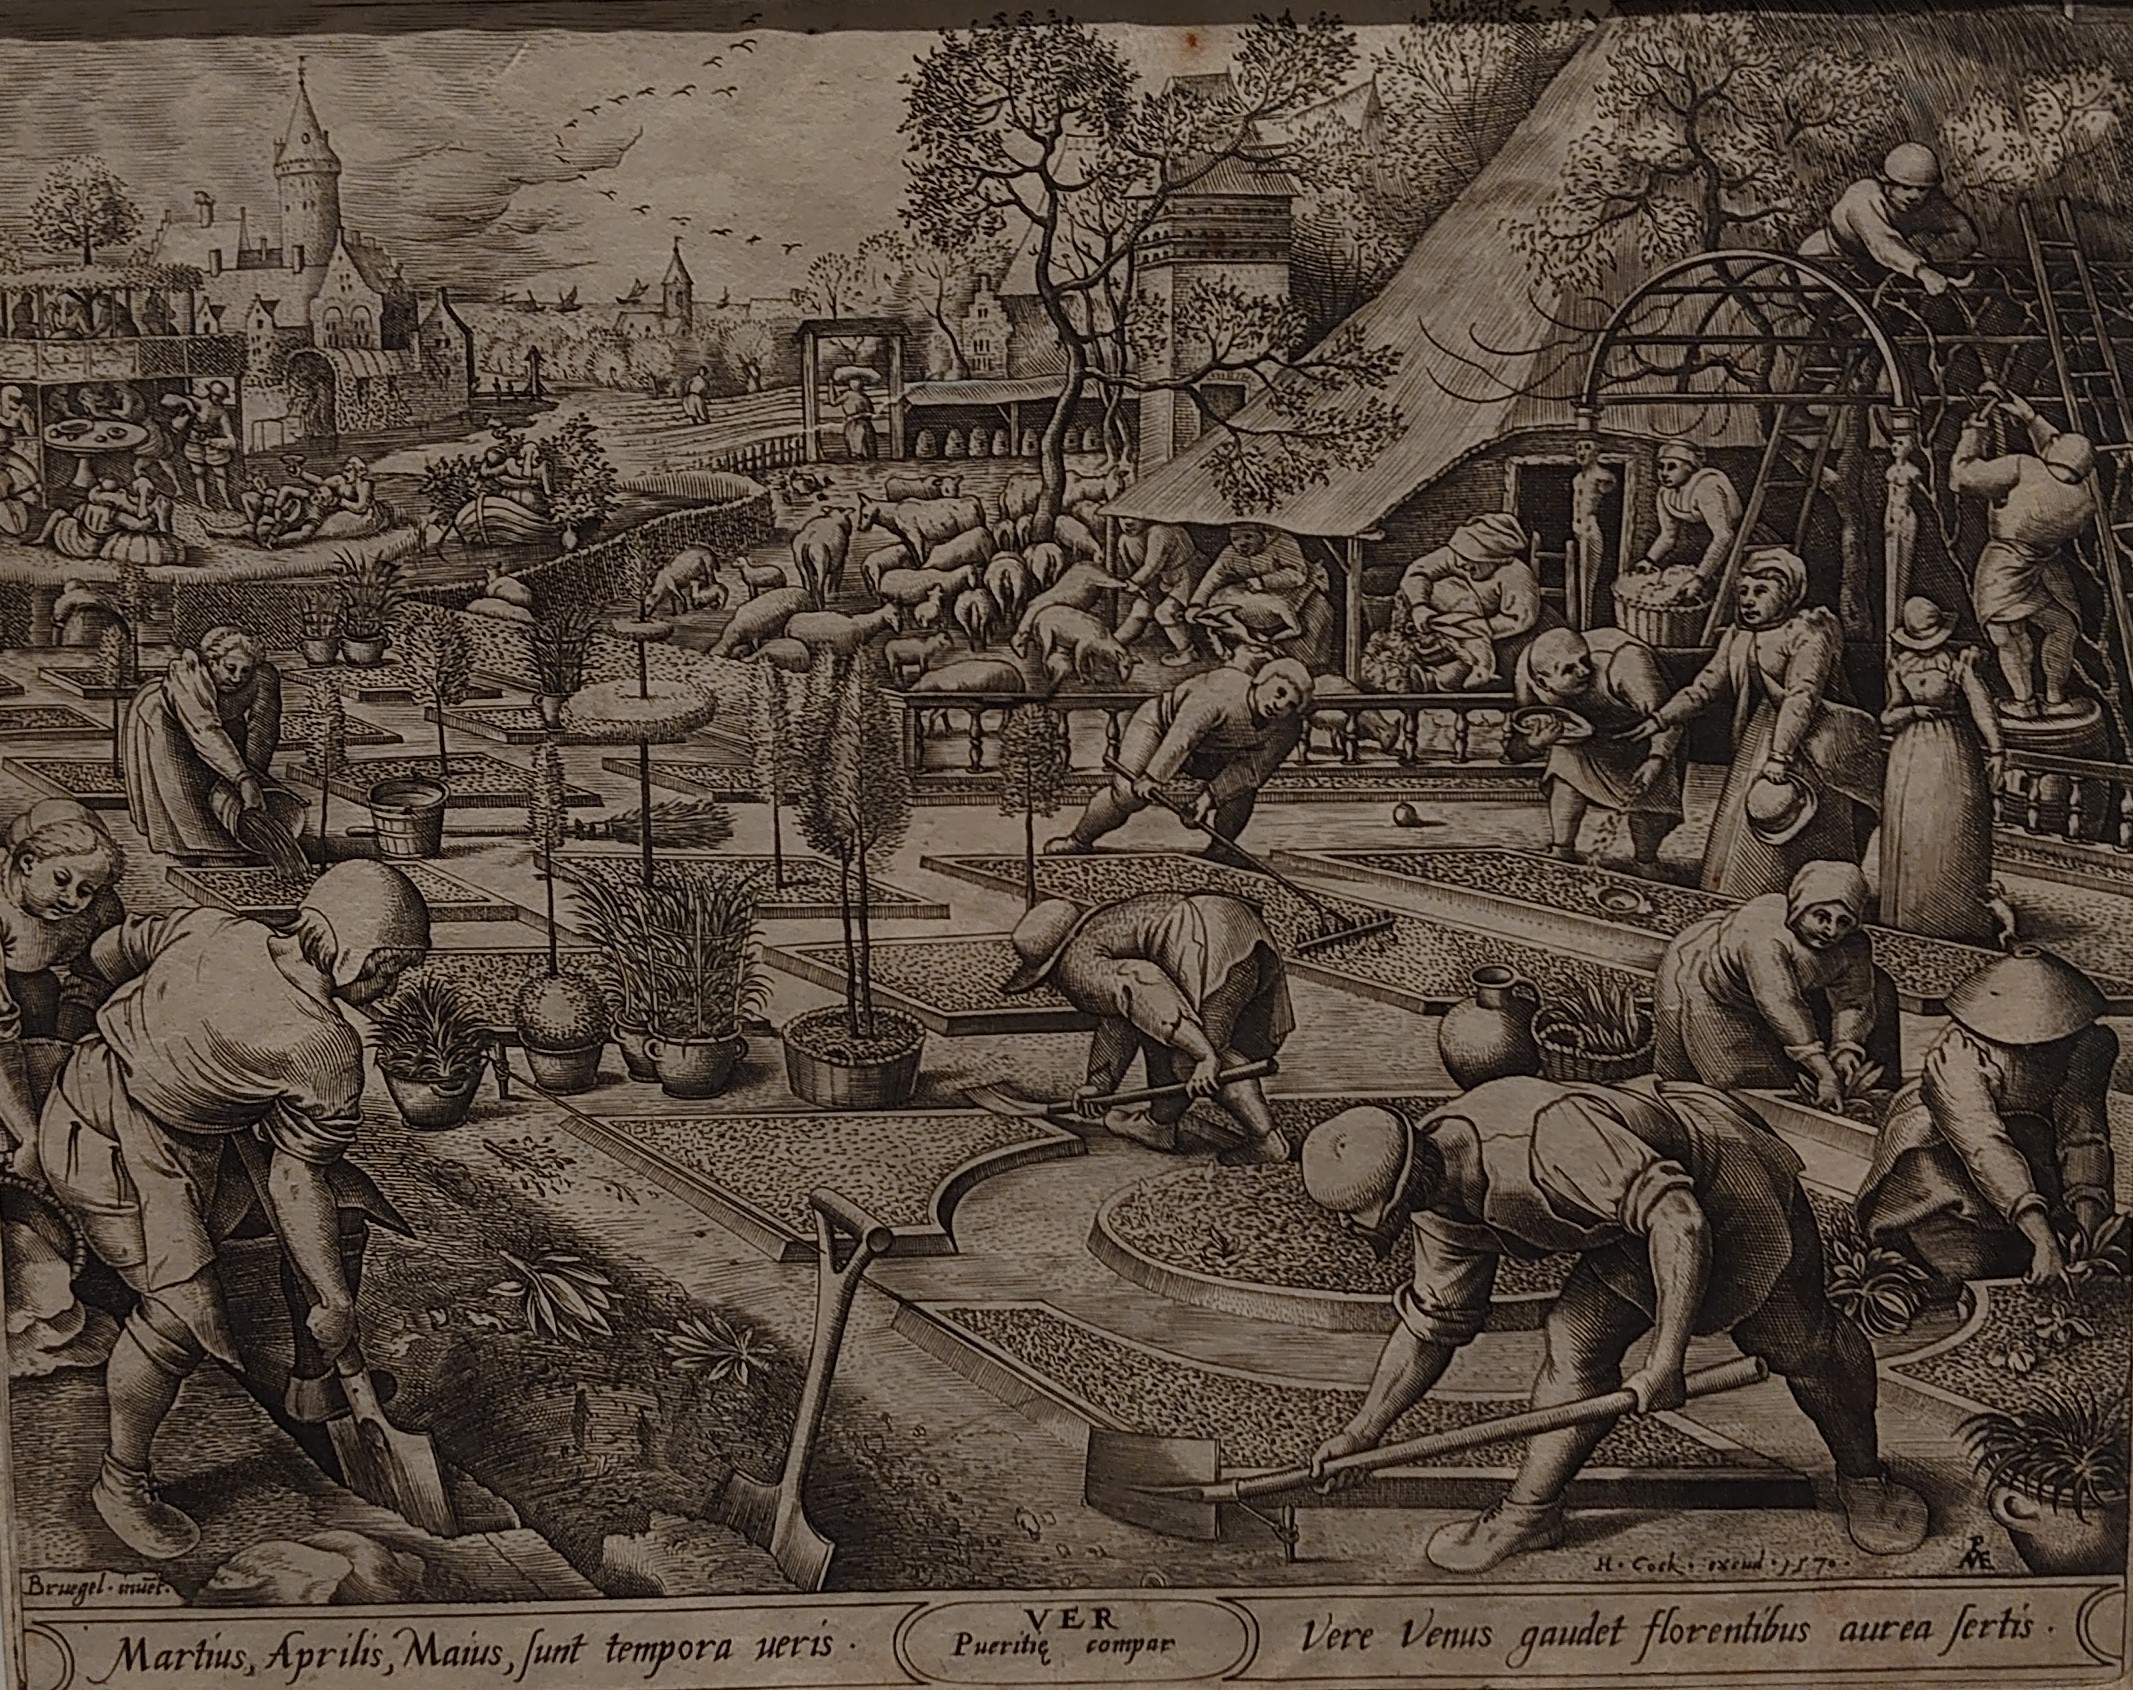 Bruegel · inuēt.
H · Cock · excud · 1570 ·
PME
Martius, Aprilis, Maius, sunt tempora ueris ·
VER
Pueritię compar
Vere Venus gaudet florentibus aurea sertis ·